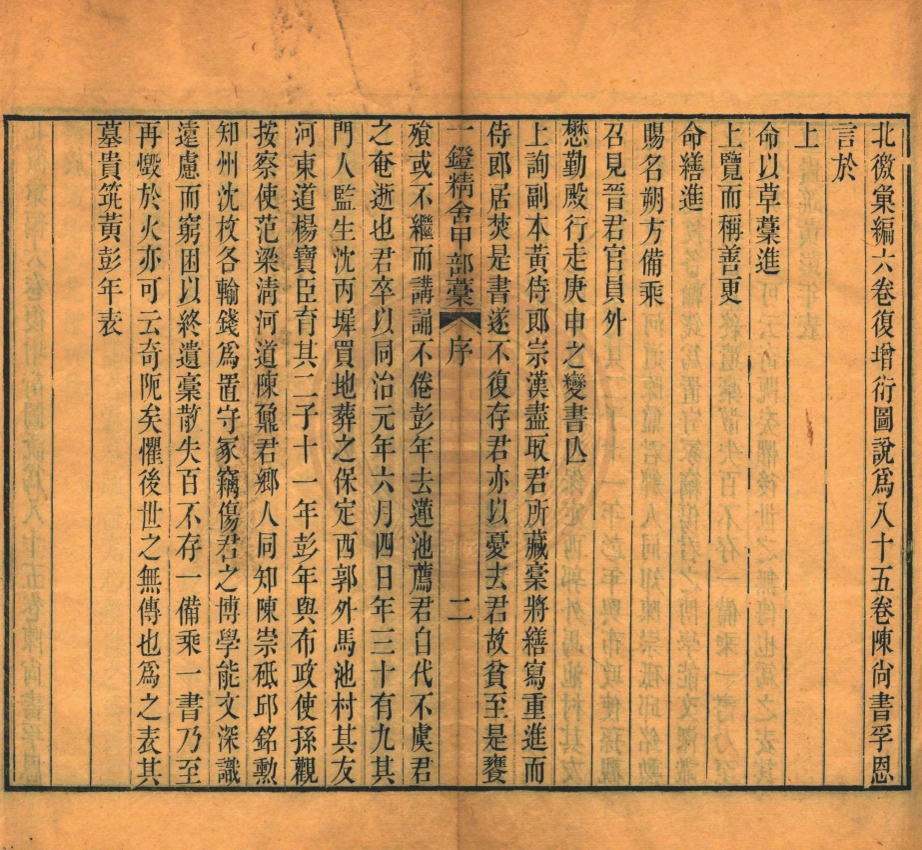 北徼彙編六卷復增衍圖說爲八十五卷陳尚書孚恩
言於
上
命以草藁進
上覽而稱善更
命繕進
賜名朔方備乘
召見晉君官員外
懋勤殿行走庚申之變書亾
上詢副本黃侍郎宗漢盡取君所藏藁將繕寫重進而
侍郎居焚是書遂不復存君亦以憂去君故貧至是甕
一鐙精舍甲部藁 序 二
飱或不繼而講誦不倦彭年去蓮池薦君自代不虞君
之奄逝也君卒以同治元年六月四日年三十有九其
門人監生沈丙墀買地葬之保定西郭外馬池村其友
河東道楊寶臣育其二子十一年彭年與布政使孫觀
按察使范梁淸河道陳鼐君鄉人同知陳崇砥邱銘勳
知州沈枚各輸錢爲置守冢竊傷君之博學能文深識
遠慮而窮困以終遺藁散失百不存一備乘一書乃至
再燬於火亦可云奇阨矣懼後世之無傳也爲之表其
墓貴筑黃彭年表